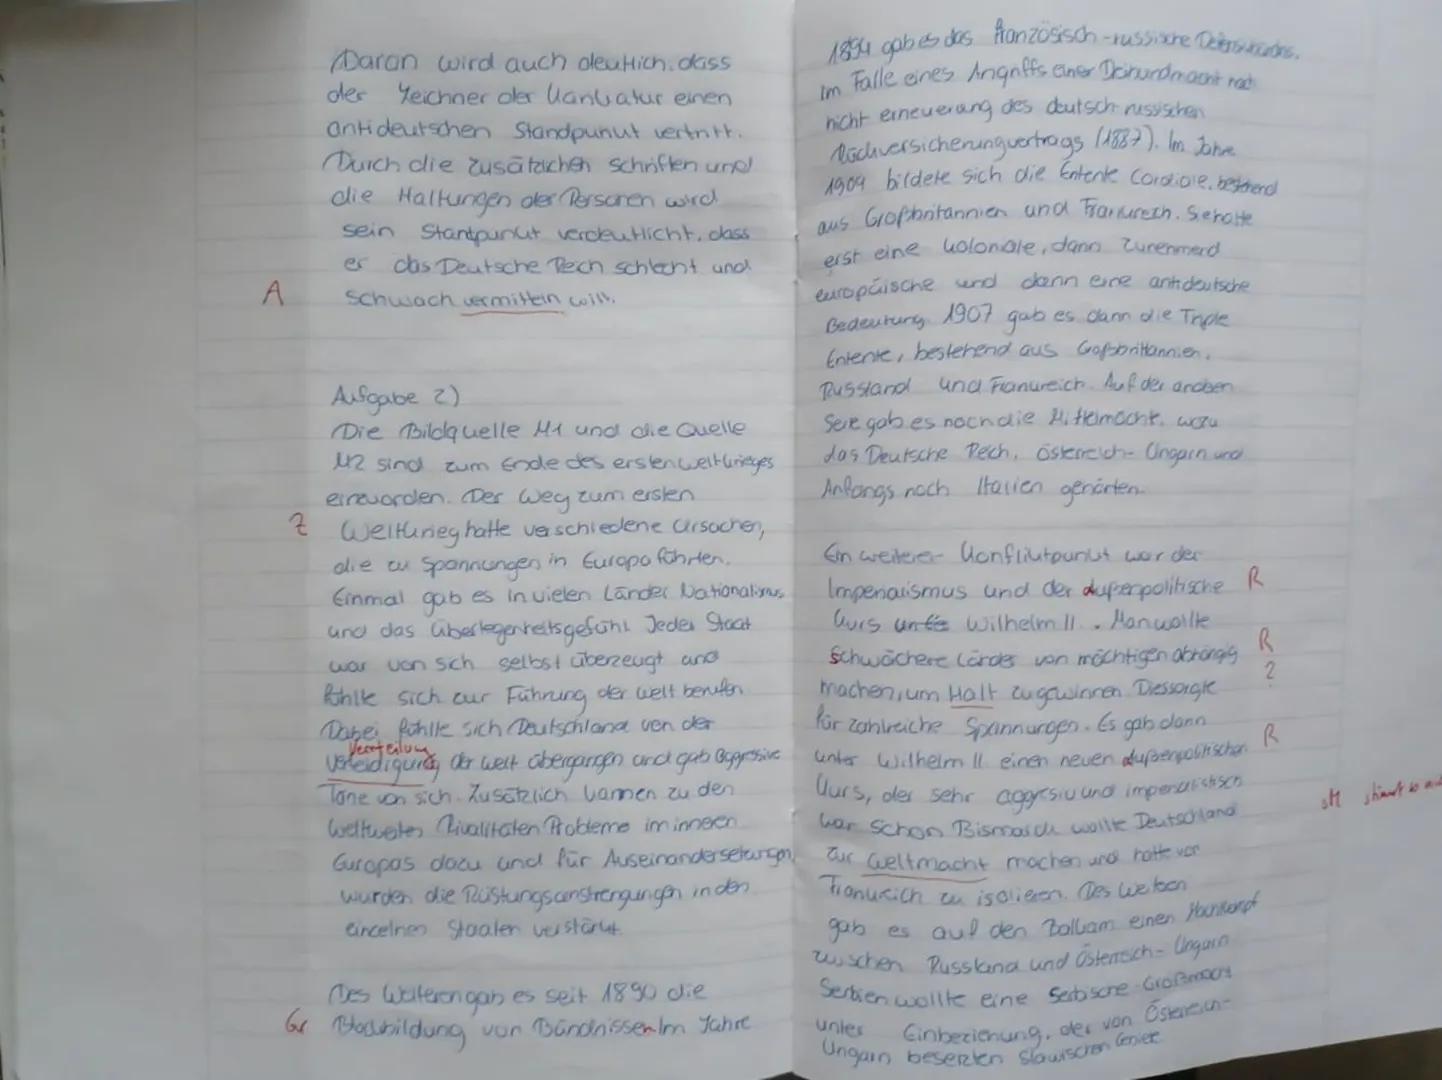 Daran wird auch deutlich, dass
der Zeichner der Karikatur einen
antideutschen Standpunkt vertritt.
Durch die zusätzlichen schriften und
die Haltungen der Personen wird
sein Standpunkt verdeutlicht, dass
er das Deutsche Reich schlecht und
A schwach vermitteln will.
Aufgabe 2)
Die Bildquelle M1 und die Quelle
M2 sind zum Ende des ersten weltkrieges
einzuorden. Der Weg zum ersten
Z Weltkrieg hatte verschiedene ursachen,
die zu Spannungen in Europa führten.
Einmal gab es in vielen Länder Nationalismus
und das überlegenheitsgefühl. Jeder Staat
war von sich selbst überzeugt und
fühlte sich zur Führung der welt berufen.
Dabei fühlte sich Deutschland von der
Verteilung
Verteidigung der welt übergangen und gab aggressive
Töne von sich. Zusätzlich kamen zu den
weltweiten Rivalitäten Probleme im inneren
Europas dazu und für Auseinandersetzungen
wurden die Rüstungsanstrengungen in den
einzelnen Staaten verstärkt.
Des Weiteren gab es seit 1890 die
Gr Blockbildung von Bündnissen. Im Jahre
1894 gab es das französisch-russische
im Falle eines Angriffs einer nach
nicht erneuerung des deutsch-russischen
Rückversicherungvertrags (1887). Im Jahre
1904 bildete sich die Entente Cordiale, bestehend
aus Großbritannien und Frankreich. Sie hatte
erst eine koloniale, dann zunehmend
europäische und dann eine antideutsche
Bedeutung. 1907 gab es dann die Triple
Entente, bestehend aus Großbrittannien,
Russland und Frankreich. Auf der anderen
Seite gab es noch die Mittelmächte, wozu
das Deutsche Reich, österreich-Ungarn und
Anfangs noch Italien gehörten.
Ein weiterer Konfliktpunkt war der
Imperialismus und der außenpolitische R
Kurs unter Wilhelm II. Man wollte
schwächere Länder von mächtigen abhängig R
machen, um Halt zu gewinnen. Dies sorgte ?
für zahlreiche Spannungen. Es gab dann
unter Wilhelm II. einen neuen außenpolitischen R
Kurs, der sehr aggresiv und imperialistisch
war. Schon Bismarck wollte Deutschland
zur Weltmacht machen und hatte vor
Frankreich zu isolieren. Des Weiteren
gab es auf den Balkan einen
zwischen Russland und Österreich-Ungarn.
Serbien wollte eine Serbische Großmacht
unter Einbeziehung, der von Österreich-
Ungarn besetzten slawischen Gebiete